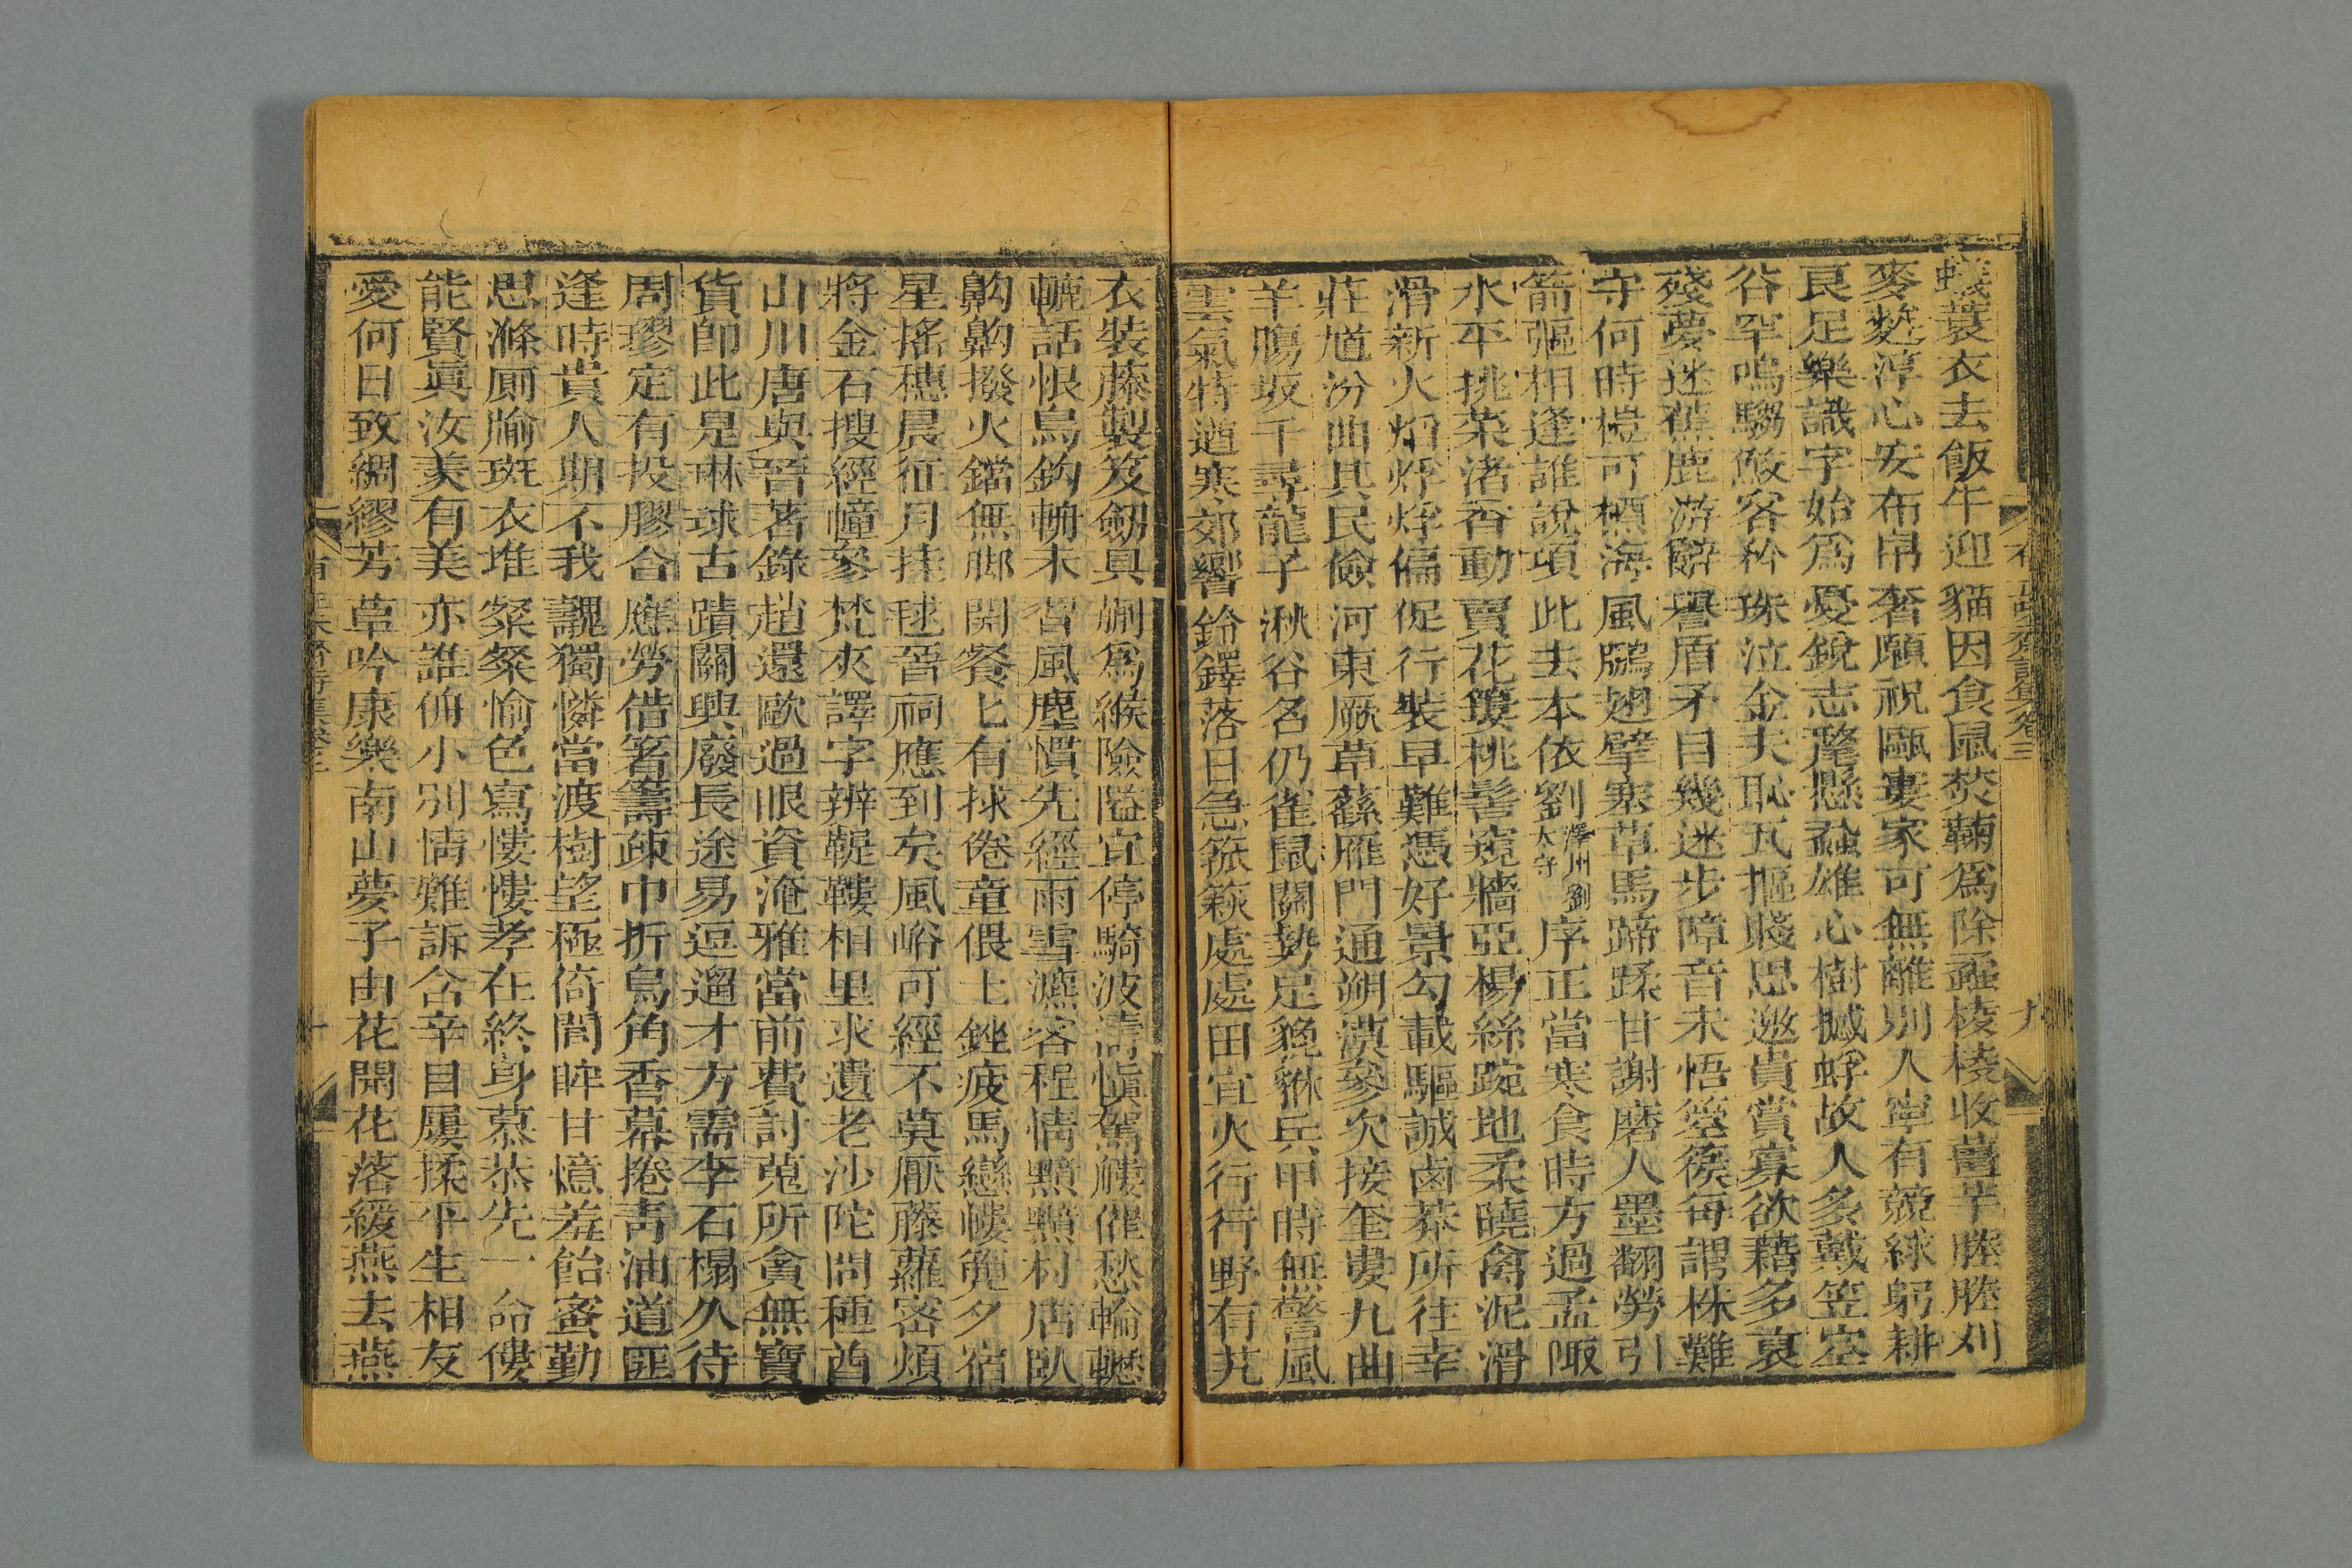 蟻蓑衣去飯牛迎貓因食鼠焚蘜爲除𧒽棱棱收薑芋塍塍刈
麥麰淳心安布帛奢願祝甌窶家可無離別人寧有競絿躬耕
良足樂識字始爲憂銳志麾懸蝥雄心樹撼蜉故人多戴笠空
谷罕鳴騶鮫客矜珠泣金夫恥瓦摳賤思邀貴賞寡欲藉多裒
殘夢迷蕉鹿游辭譽盾矛目幾迷步障音未悟箜篌每謂株難
守何時榿可槱海風鵬翅擘塞草馬蹄蹂甘謝磨人墨翻勞引
箭彄相逢誰說項此去本依劉澤州劉太守序正當寒食時方過孟陬
水平挑菜渚香動賣花簍桃髻窺牆亞楊絲踠地柔曉禽泥滑
滑新火焰烰烰偏促行裝早難憑好景勾載驅誠鹵莽所往幸
莊馗汾曲其民儉河東厥草蘨雁門通朔漠參次接奎婁九曲
羊腸坂千尋龍子湫谷名仍雀鼠關勢足貔貅兵甲時無警風
雲氣特遒寒郊響鈴鐸落日急箛篍處處田宜火行行野有芃
衣裝藤製笈劒具蒯爲緱險隘宜停騎波濤愼駕艛催愁輪轣
轆話恨鳥鉤輈未習風塵慣先經雨雪瀌客程情黯黯村店臥
齁齁撥火鐺無腳開餐匕有捄倦童偎土銼疲馬戀幰篼夕宿
星搖穗晨征月挂毬晉祠應到矣風峪可經不莫厭藤蘿密煩
將金石搜經幢參梵夾譯字辨鞮鞻相里求遺老沙陀問種酋
山川唐與晉著錄趙還歐過眼資淹雅當前費討蒐所貪無寶
貨卽此是琳球古蹟關興廢長途易逗遛才方需李石榻久待
周璆定有投膠合應勞借箸籌疎巾折烏角香幕捲靑油道匪
逢時貴人期不我䜐獨憐當渡樹望極倚閭眸甘憶羞飴蜜勤
思滌廁牏斑衣堆粲粲愉色寫慺慺孝在終身慕恭先一命僂
能賢眞汝羡有美亦誰侜小別情難訴含辛目屢揉平生相友
愛何日致綢繆芳草吟康樂南山夢子由花開花落緩燕去燕